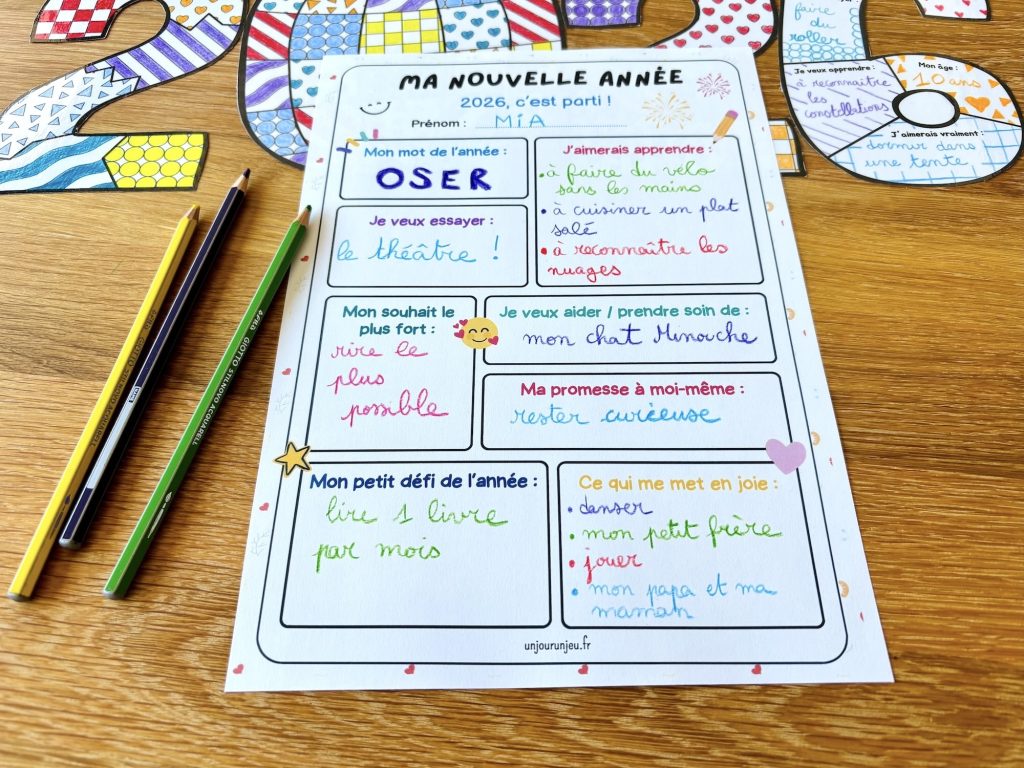 faire
du
roller
Je veux apprendre :
à reconnaître
les
constellations
Mon âge :
10 ans
J'aimerais vraiment :
dormir dans
une tente
MA NOUVELLE ANNÉE
2026, c'est parti !
Prénom : MIA
Mon mot de l'année :
OSER
J'aimerais apprendre :
• à faire du vélo
sans les mains
• à cuisiner un plat
salé
• à reconnaître les
nuages
Je veux essayer :
le théâtre !
Mon souhait le
plus fort :
rire le
plus
possible
Je veux aider / prendre soin de :
mon chat Minouche
Ma promesse à moi-même :
rester curieuse
Mon petit défi de l'année :
lire 1 livre
par mois
Ce qui me met en joie :
• danser
• mon petit frère
• jouer
• mon papa et ma
maman
unjourunjeu.fr
GIOTTO STILNOVO ACQUARELL